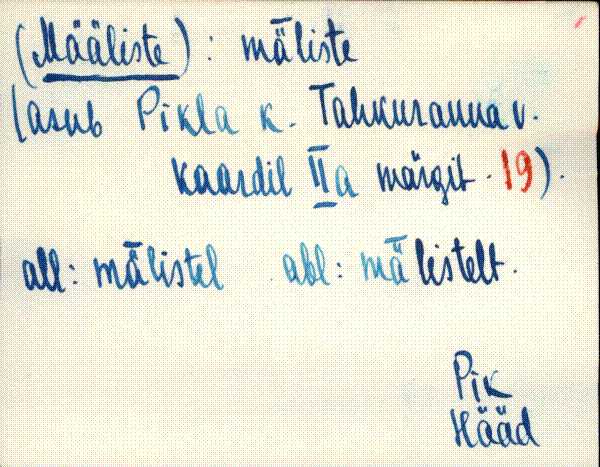 (Määliste): mǟliste
(asub Pikla k. Tahkuranna v.
kaardil IIa märgit. 19).
all: mǟlistel abl: mǟlistelt.
Pik
Hääd